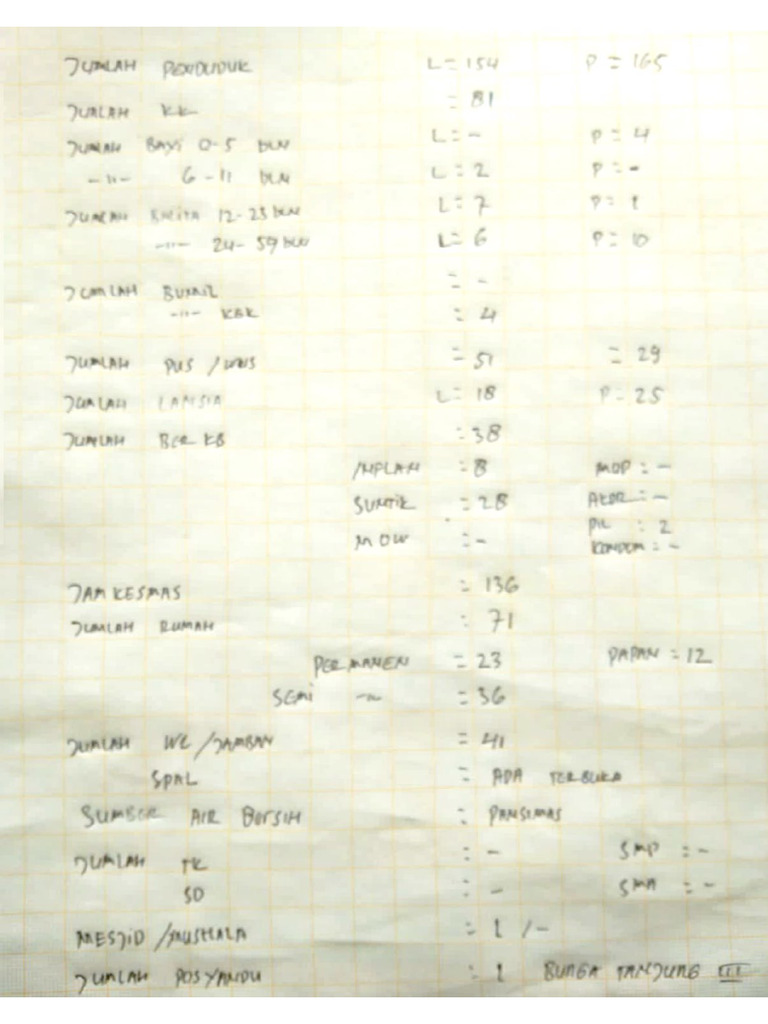 JUMLAH PENDUDUK L = 154 P = 165
JUMLAH KK = 81
JUMLAH BAYI 0-5 BLN L = - P = 4
-"- 6-11 BLN L = 2 P = -
JUMLAH BALITA 12-23 BLN L = 7 P = 1
-"- 24-59 BLN L = 6 P = 10
JUMLAH BUMIL = -
-"- KEK = 4
JUMLAH PUS / WUS = 51 = 29
JUMLAH LANSIA L = 18 P = 25
JUMLAH BER KB = 38
IMPLAN = 8 MOP = -
SUNTIK = 28 AKDR = -
MOW = - PIL = 2
KONDOM = -
JAMKESMAS = 136
JUMLAH RUMAH = 71
PERMANEN = 23 PAPAN = 12
SEMI -"- = 36
JUMLAH WC / JAMBAN = 41
SPAL = ADA TERBUKA
SUMBER AIR BERSIH = PAMSIMAS
JUMLAH TK = - SMP = -
SD = - SMA = -
MESJID / MUSHALA = 1 / -
JUMLAH POSYANDU = 1 BUNGA TANJUNG III